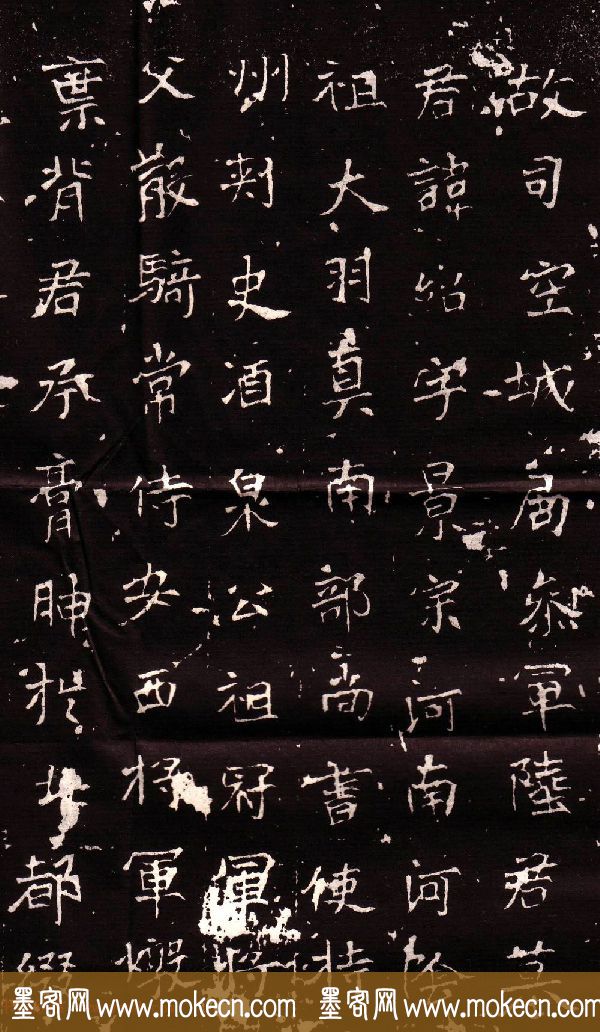 故司空城局叅軍陸君墓
君諱紹字景宗河南河陰
祖大羽真南部尚書使持
州刺史酒泉公祖冠軍將
父散騎常侍安西將軍
葉背君承膏都綴
墨客网 www.mokecn.com 墨客网 www.mokecn.com